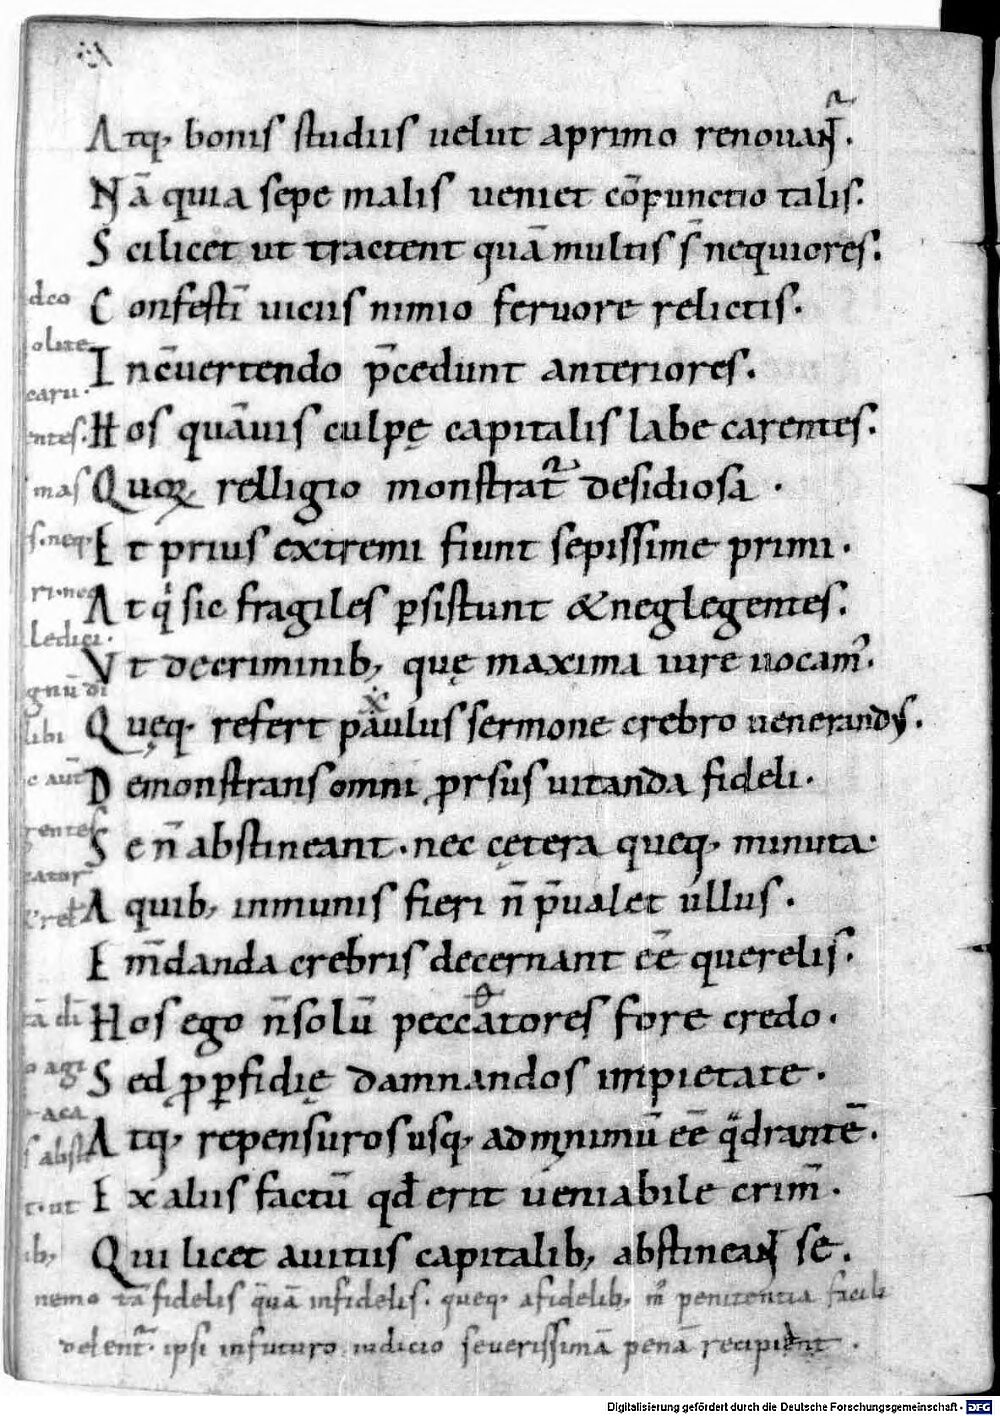 Atq, bonis studiis uelut aprimo renouaNt̃.
Nā quia sepe malis ueniet cōpunctio talis.
Scilicet ut tractent quā multis s̄ nequiores.
Confestī uiciis nimio feruore relictis.
In c̄uertendo p̄cedunt anteriores.
Hos quāuis culpę capitalis labe carentes.
Quoꝝ relligio monstrat̃ desidiosa .
Et prius extremi fiunt sepissime primi.
Atq sic fragiles ꝑsistunt & neglegentes.
Vt decriminib, quę maxima iure uocam᾿.
Quęq. refert paulus sermone crebro uenerandus.
Demonstrans omni ꝓrsus uitanda fideli.
Se n̄ abstineant. nec cętera queq, minuta.
A quib, inmunis fieri n̄ p̄ualet ullus.
Em̄danda crebris decernant eē̄ querelis.
Hos ego n̄ solū peccatores fore credo.
Sed ꝓ ꝑfidię damnandos impietate.
Atq, repensuros usq, ad minimū eē qdrantē.
Ex aliis factū qđ erit ueniabile crim̄.
Qui licet a uitiis capitalib, abstineaNt se.
nemo tā fidelis quā infidelis. queq, a fidelib, penitentia facile
delent̃. ipsi in futuro iudicio seuerissimā penā recipient.
deo
olite
caru.
entes.
mas
s. neq.
ri. nec
ledici.
gnū di
libi
c aut̄
gentes
cator
rel
tā di
agi
aca
s absti
t. ut
ib,
Digitalisierung gefördert durch die Deutsche Forschungsgemeinschaft - DFG